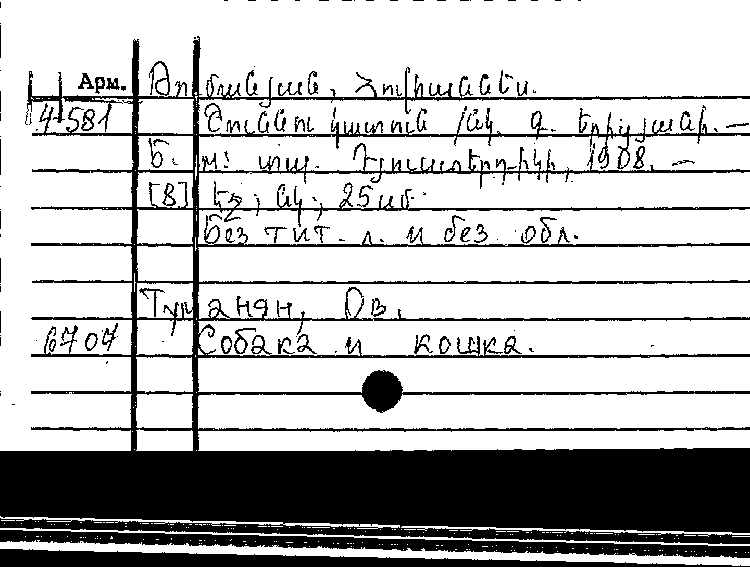 Арм. Թումանյան, Հովհաննես.
4-581 Շունն ու կատուն /նկ. գ.
Б. м: տպ. 1908. —
[8] էջ; նկ; 25սմ.
Без тит. л. и без обл.
Туманян, Ов.
6707 Собака и кошка.